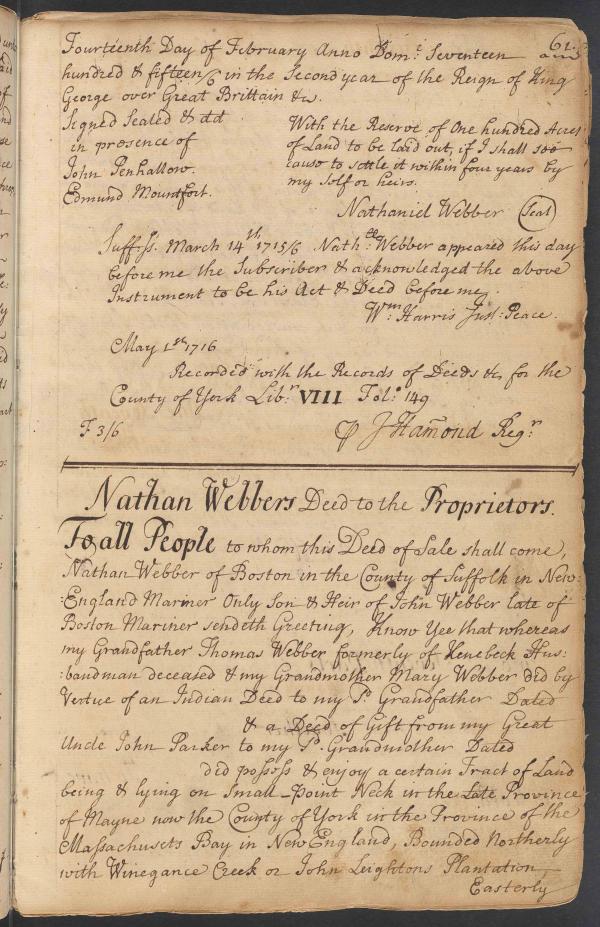 61.
Fourteenth Day of February Anno Dom: Seventeen
hundred & fifteen/6 in the Second year of the Reign of King
George over Great Brittain &c.
Signed Sealed & dd
in presence of
John Penhallow.
Edmund Mountfort.
With the Reserve of One hundred Acres
of Land to be laid out, if I shall see
cause to settle it within four years by
my Self or heirs.
Nathaniel Webber (Seal)
Suff: Ss. March 14th 1715/6 Nath:ll Webber appeared this day
before me the Subscriber & acknowledged the above
Instrument to be his Act & Deed before me.
Wm Harris Just: Peace.
May 1st 1716
Recorded with the Records of Deeds &c for the
County of York Lib:r VIII Fol:o 149
F 3/6
J Hamond Reg:r
Nathan Webbers Deed to the Proprietors.
To all People to whom this Deed of Sale shall come,
Nathan Webber of Boston in the County of Suffolk in New-
:England Mariner Only Son & Heir of John Webber late of
Boston Mariner sendeth Greeting, Know Yee that whereas
my Grandfather Thomas Webber formerly of Kenebeck Hus:
:bandman deceased & my Grandmother Mary Webber did by
Vertue of an Indian Deed to my Sd. Grandfather Dated
& a Deed of Gift from my Great
Uncle John Parker to my Sd. Grandmother Dated
did possess & enjoy a certain Tract of Land
being & lying on Small-Point Neck in the Late Province
of Mayne now the County of York in the Province of the
Massachusets Bay in New England, Bounded Northerly
with Winegance Creek or John Leightons Plantation
Easterly